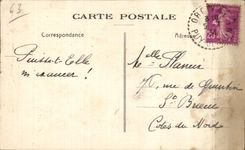 63
CARTE POSTALE
Correspondance
Adresse
Puisse-t-Elle
m'exaucer !
Melle
rue de
St Brieuc
Côtes du Nord